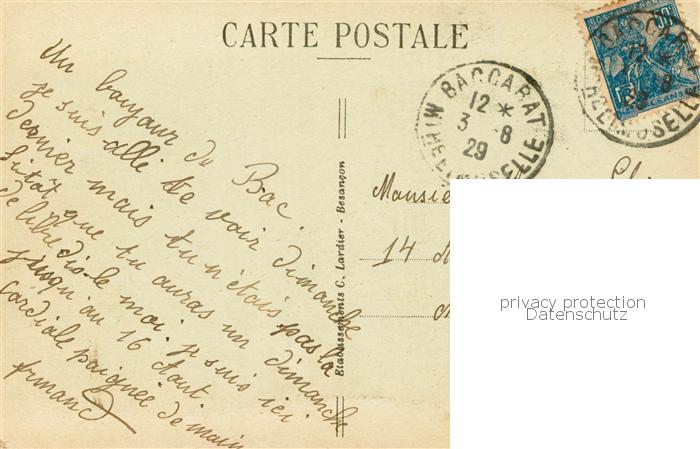 CARTE POSTALE
Un bonjour de Bac.
je suis allé te voir dimanche
dernier mais tu n'étais pas là
sitôt que tu auras un dimanche
de libre dis-le moi. je suis ici
jusqu'au 16 Aout
Cordiale poignée de main
Armand
Etablissements C. Lardier - Besançon
BACCARAT
12 *
3 - 8
29
MEURTHE ET MOSELLE
50c
ORLEANS
BACCARAT
8
29
MOSELLE
14
privacy protection
Datenschutz